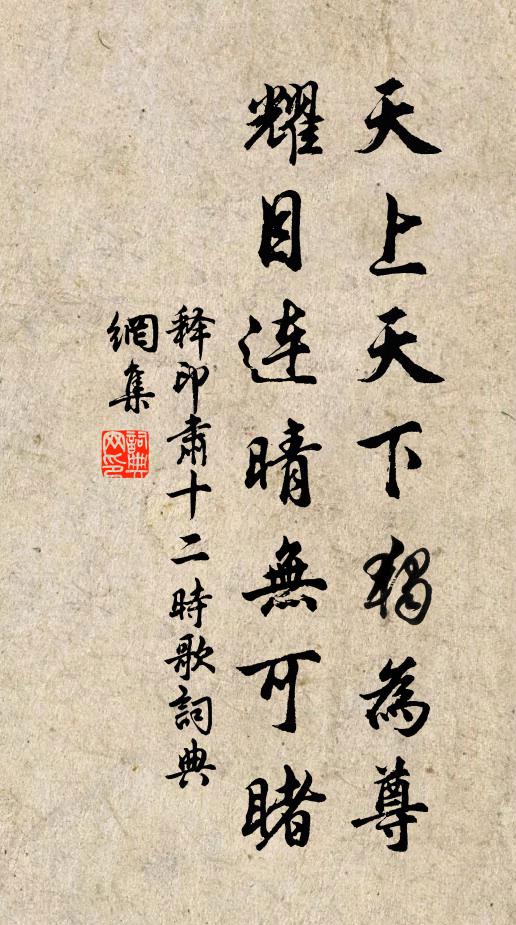 天上天下獨為尊
耀目連晴無可睹
釋印肅十二時歌詞典
網集
詞典
网印